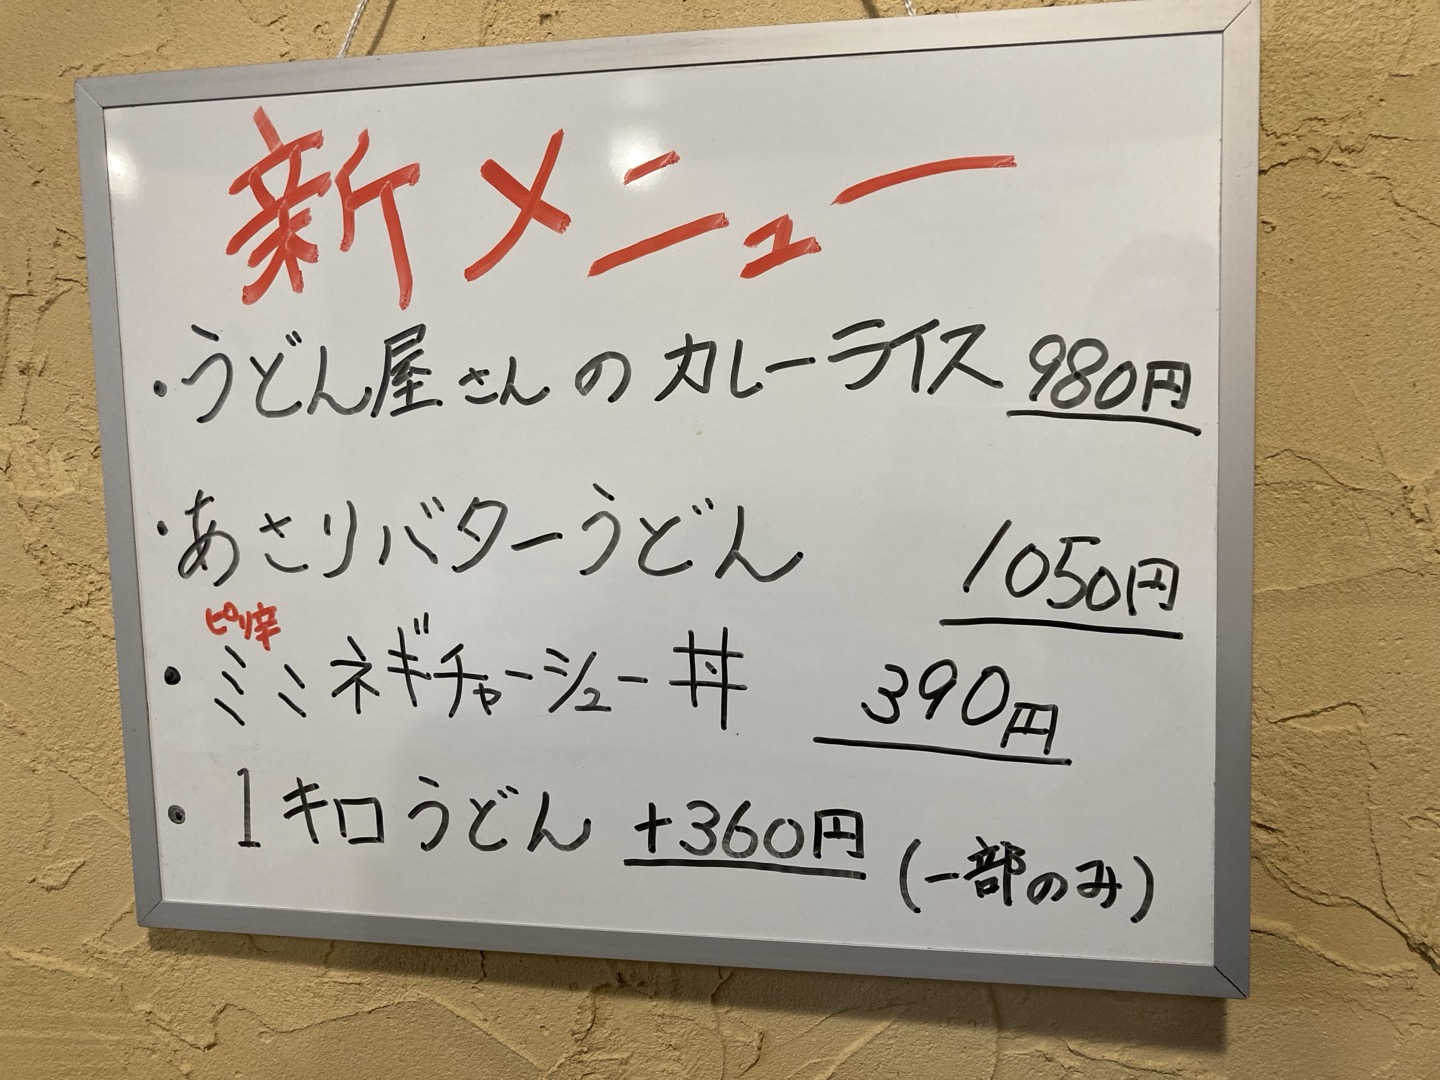 新メニュー
・うどん屋さんのカレーライス 980円
・あさりバターうどん 1050円
ピリ辛
・ミニネギチャーシュー丼 390円
・1キロうどん +360円 (一部のみ)